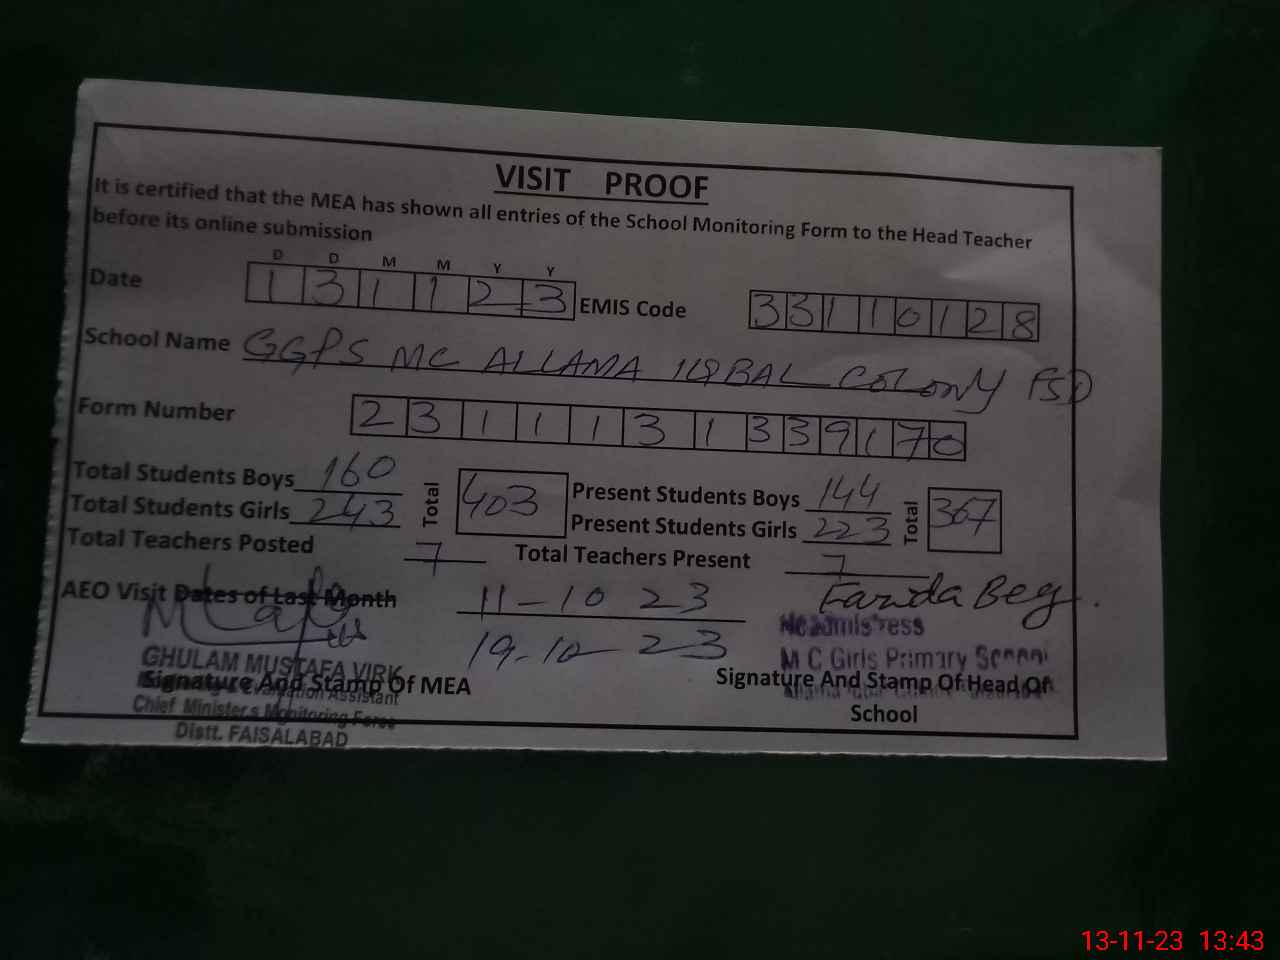 VISIT PROOF
It is certified that the MEA has shown all entries of the School Monitoring Form to the Head Teacher
before its online submission
D D M M Y Y
Date 1 3 1 1 2 3 EMIS Code 3 3 1 1 0 1 2 8
School Name GGPS MC ALLAMA IQBAL COLONY FSD
Form Number 2 3 1 1 1 3 1 3 3 9 1 7 0
Total Students Boys 160 Total 403 Present Students Boys 144 Total 367
Total Students Girls 243 Present Students Girls 223
Total Teachers Posted 7 Total Teachers Present 7
AEO Visit Dates of Last Month 11-10 23 Farida Beg.
19-10 23 Headmistress
GHULAM MUSTAFA VIRK M C Girls Primary School
Signature And Stamp Of MEA Signature And Stamp Of Head Of
Evaluation Assistant
Chief Minister's Monitoring Force School
Distt. FAISALABAD
13-11-23 13:43